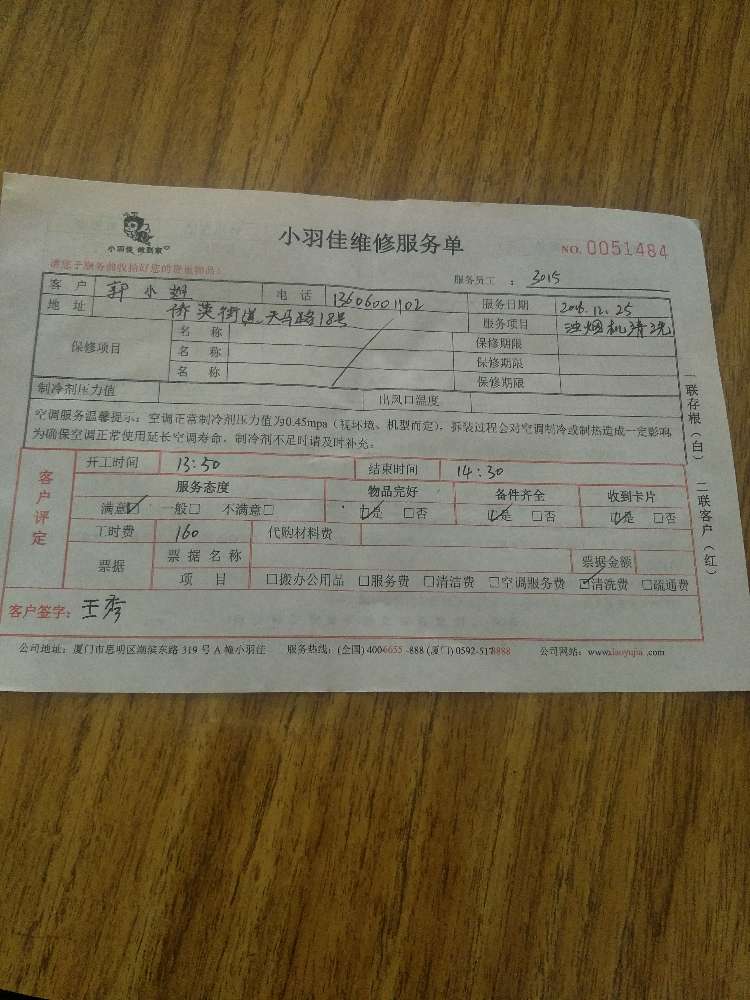 小羽佳 做到家
小羽佳维修服务单
NO. 0051484
请您于服务前收拾好您的贵重物品!
服务员工 : 3015
客户 郭小姐 电话 13606001102 服务日期 2016.12.25
地址 侨英街道天马路18号 服务项目 油烟机清洗
保修项目 名称 保修期限
名称 保修期限
名称 保修期限
制冷剂压力值 出风口温度
空调服务温馨提示:空调正常制冷剂压力值为0.45mpa(视环境、机型而定),拆装过程会对空调制冷或制热造成一定影响
为确保空调正常使用延长空调寿命,制冷剂不足时请及时补充。
一联存根(白) 二联客户(红)
客户评定
开工时间 13:50 结束时间 14:30
服务态度 物品完好 备件齐全 收到卡片
满意☑ 一般□ 不满意□ ☑是 □否 ☑是 □否 ☑是 □否
工时费 160 代购材料费
票据 票据名称 票据金额
项目 □搬办公用品 □服务费 □清洁费 □空调服务费 ☑清洗费 □疏通费
客户签字: 王秀
公司地址:厦门市思明区湖滨东路 319 号 A 幢小羽佳 服务热线:(全国) 4006655 -888 (厦门) 0592-5178888 公司网站:www.xiaoyujia .com